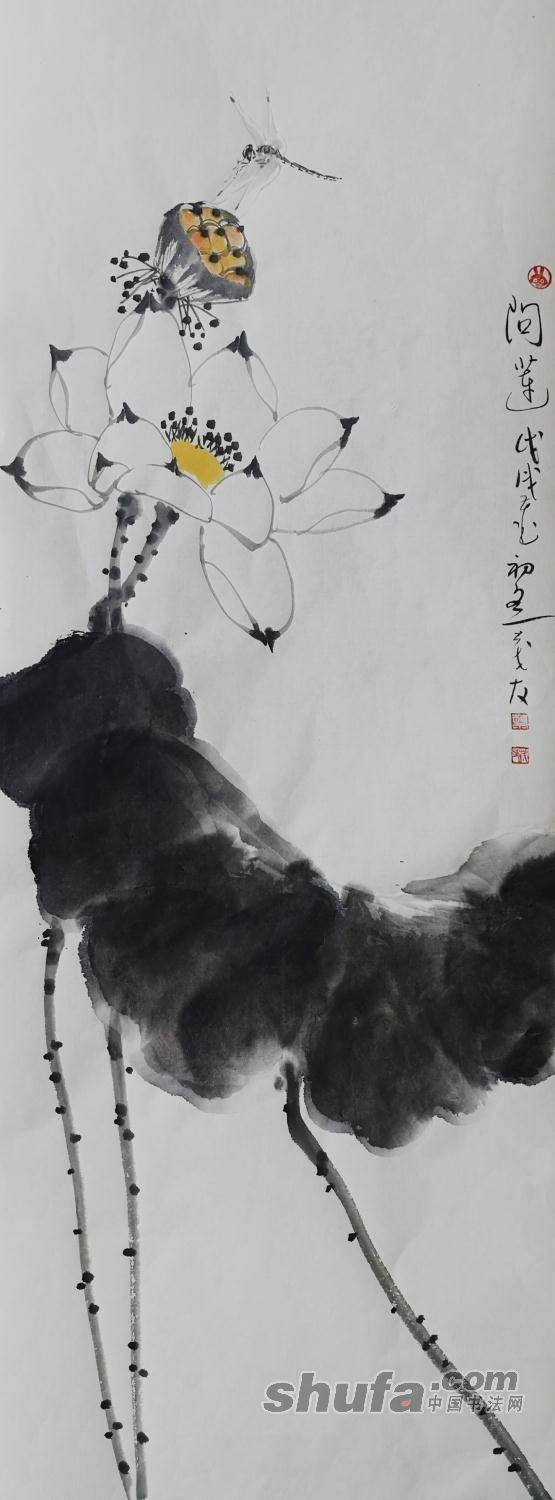 问莲 戊戌年初冬 义友
shufa.com
中国书法网